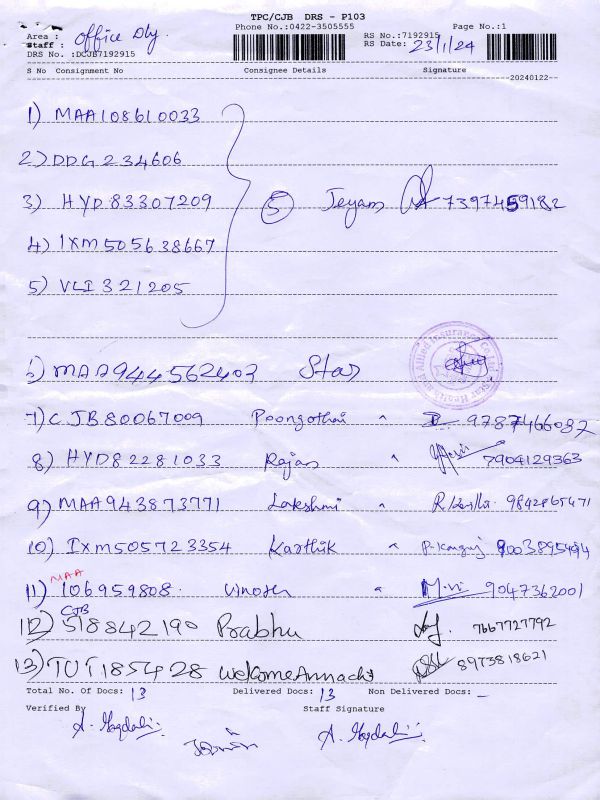 TPC/CJB DRS - P103
Phone No.:0422-3505555
Page No.:1
Area : office Dly
Staff :
DRS No. :DCJB7192915
RS No.:7192915
RS Date: 23/1/24
S No Consignment No Consignee Details Signature
20240122
1) MAA108610033
2) DDG234606
3) HYD83307209
5 Jeyam 7397459182
4) IXM505638667
5) VLI321205
6) MAA944562403 Star
7) CJB80067009 Poongothai 9787466087
8) HYD82281033 Rajan 7904129363
9) MAA943873771 Lakshmi 9842865471
10) IXM505723354 Karthik
11) MAA 106959808 9047362001
12) CJB 518842190 Prabhu 7667727792
13) TUT1854428 Welcome Annachi 8973818621
Total No. Of Docs: 13 Delivered Docs: 13 Non Delivered Docs: -
Verified By Staff Signature